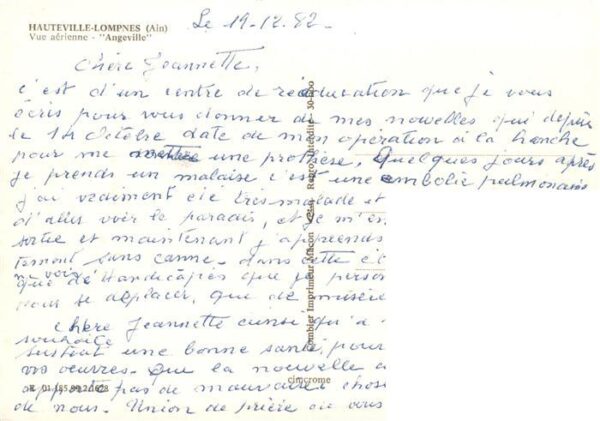 HAUTEVILLE-LOMPNES (Ain)
Vue aérienne - "Angeville"
Le 19.12.82
Chère Jeannette,
c'est d'un centre de rééducation que je vous
écris pour vous donner de mes nouvelles qui depuis
le 14 Octobre date de mon opération à la hanche
pour me mettre une prothèse. Quelques jours après
je prends un malaise c'est une embolie pulmonaire
j'ai vraiment été très malade et
d'aller voir le paradis, et je m'en
sortie et maintenant j'apprends
sans canne. dans cette
ne voir
que de Handicapés que je
pour se déplacer, que de misère
Chère Jeannette ainsi qu'à
souhaite
une bonne santé, pour
vos oeuvres. que la nouvelle a
apporte pas de mauvaises chose
de nous. Union de prière ou vous
Combier Imprimeur Mâcon
Repro. Interdite
cimcrome